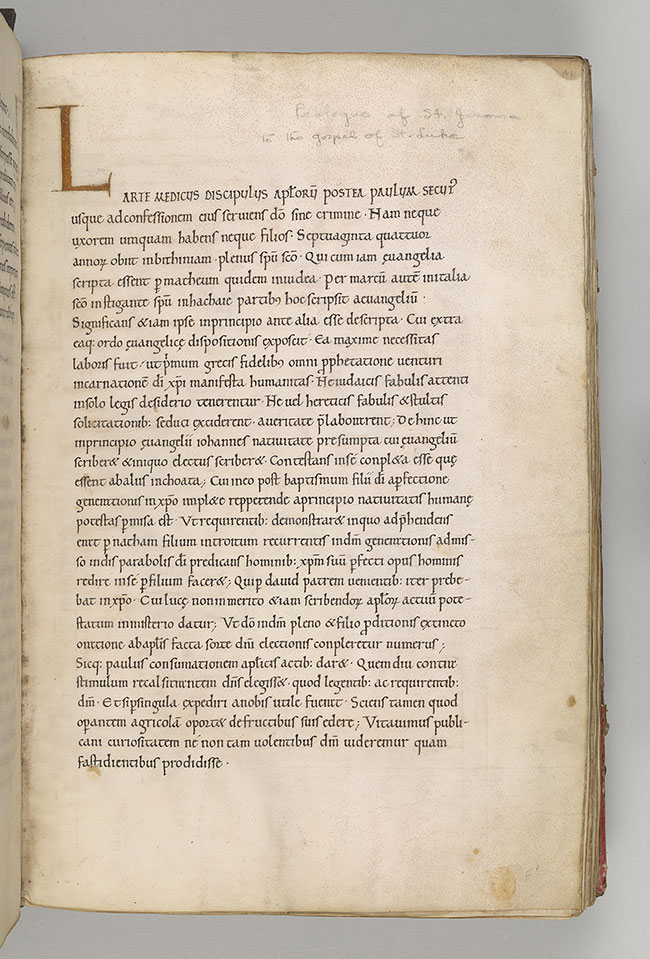 Prologue of St. Jerome
to the gospel of St. Luke
L
ARTE MEDICUS DISCIPULUS APL̄ORŪ POSTEA PAULUM SECUT᾽
usque adconfessionem eius seruiens dō sine crimine · Nam neque
uxorem umquam habens neque filios · Septuaginta quattuor
annoꝝ obiit inbithiniam · plenus sp̄u scō · Qui cum iam ęuangelia
scripta essent ꝑ matheum quidem iniudea · Per marcū autē initalia
scō instigante sp̄u inhachaie partibꝰ hoc scripsit aeuangeliū ·
Significans &iam ipse inprincipio ante alia esse descripta · Cui extra
eaq: ordo ęuangelicę dispositionis exposcit · Ea maxime necessitas
laboris fuit · ut p̍mum grecis fidelibꝰ omni ꝓphetatione uenturi
incarnationē dī xp̄i manifesta humanitas · Ne iudaicis fabulis attenti
insolo legis desiderio tenerentur · Ne uel hereticis fabulis &stultis
solicitationib: seduci exciderent · aueritate p̄laborent; Dehinc ut
inprincipio ęuangelii iohannes natiuitate presumpta cui ęuangeliū
scriber& &iniquo electus scriber& · Contestans insē conpl&a esse quę
essent abaliis inchoata; Cui ideo post baptismum filii dī aꝑfectione
generationis inxp̄o impl&e reppetende aprincipio natiuitatis humanę
potestas ꝑmisa est · Ut requirentib: demonstrar& inquo adp̄hendens
erat ꝑ nacham filium introitum recurrentis indm̄ generationis admis-
so indis parabolis dī predicans hominib: xp̄m suū ꝑfecti opus hominis
redire insē ꝑfilium facer&; Qui ꝑ dauid patrem uenientib: iter prebe-
bat inxp̄o · Cui lucę non inmerito &iam scribendoꝝ apl̄oꝝ actuū pote-
statum inministerio datur; Ut dō indm̄ pleno & filio ꝓditionis extincto
oratione abapl̄is facta sorte dn̄i electionis conpleretur numerus;
Sicq: paulus consumationem apl̄icis actib: dar& · Quem diu contra
stimulum recalsitrantem dn̄s elegiss& · quod legentib: ac requirentib:
dm̄ · Et si ꝑsingula expediri anobis utile fuerat · Sciens tamen quod
oꝑantem agricolā oport& defructibus suis edere; Vitauimus publi-
cani curiositatem ne non tam uolentibus dm̄ uideremur quam
fastidientibus prodidisse ·